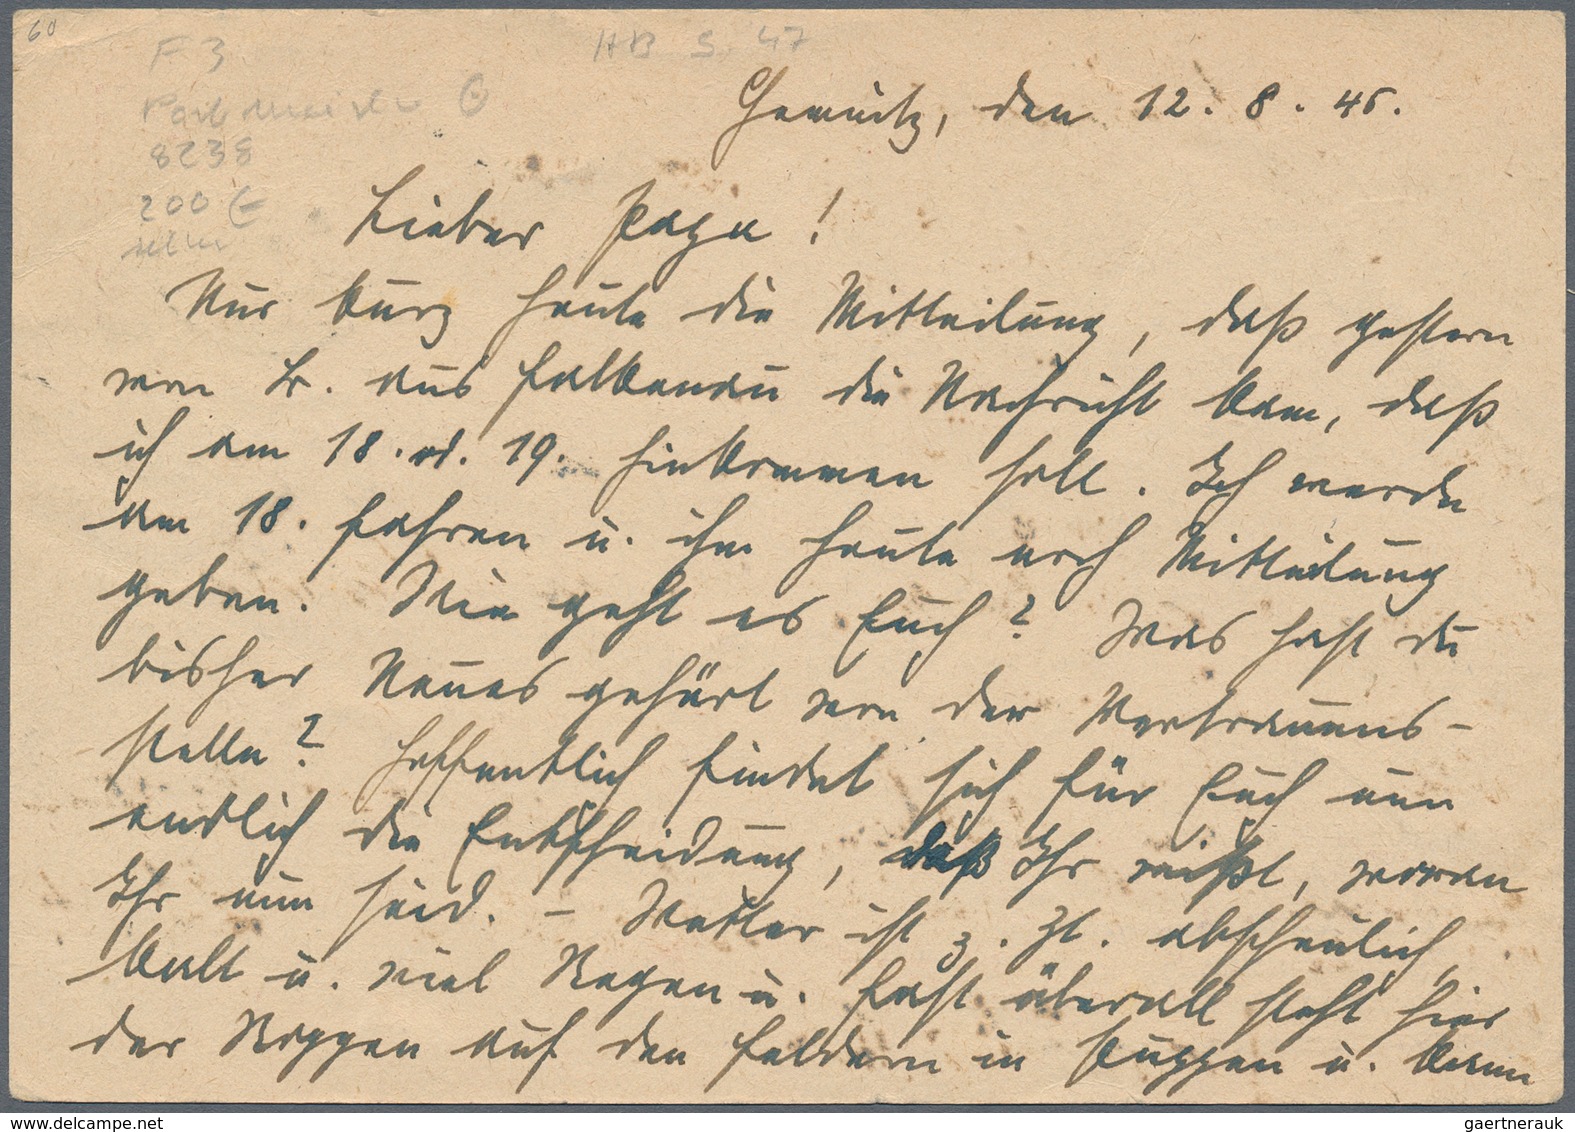 60
F 3
HB S. 47
8238
200 €
Chemnitz, den 12. 8. 45.
Lieber Papa!
Nur kurz heute die Mitteilung, daß gestern
von Dr. aus Falkenau die Nachricht kam, daß
ich am 18. od. 19. hinkommen soll. Ich werde
am 18. fahren u. ihm heute noch Mitteilung
geben. Wie geht es Euch? Was hast du
bisher Neues gehört von der Vertrauens-
stelle? Hoffentlich findet sich für Euch nun
endlich die Entscheidung, daß Ihr wißt, woran
Ihr nun seid. – Wetter ist z. Zt. abscheulich,
kalt u. viel Regen u. fast überall steht hier
der Roggen auf den Feldern in Puppen u. kann
www.delcampe.net
gaertnerauk